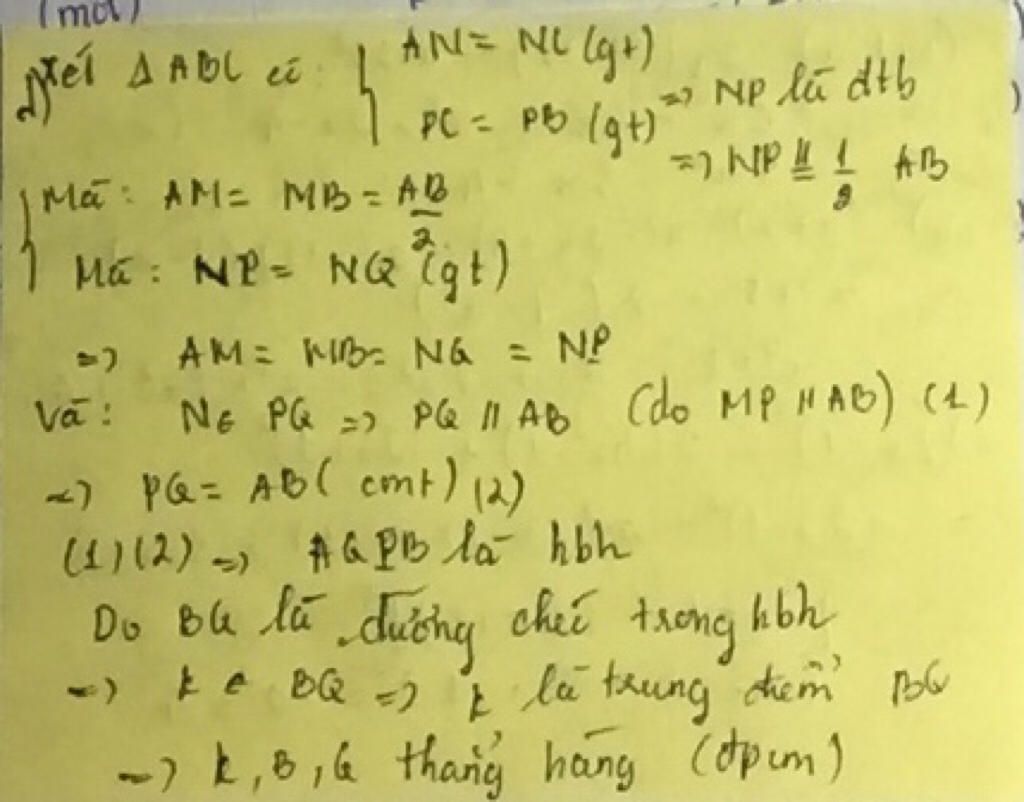 (mol)
d) Xét Δ ABC có: { AN = NC (gt)
PC = PB (gt) => NP là đtb
=> NP ∥= 1/2 AB
Mà: AM = MB = AB/2
Mà: NP = NQ (gt)
=> AM = MB = NQ = NP
Và: N∈ PQ => PQ // AB (do MP // AB) (1)
=> PQ = AB (cmt) (2)
(1)(2) => AQPB là hbh
Do BQ là đường chéo trong hbh
=> k ∈ BQ => k là trung điểm BQ
=> k, B, Q thẳng hàng (đpcm)